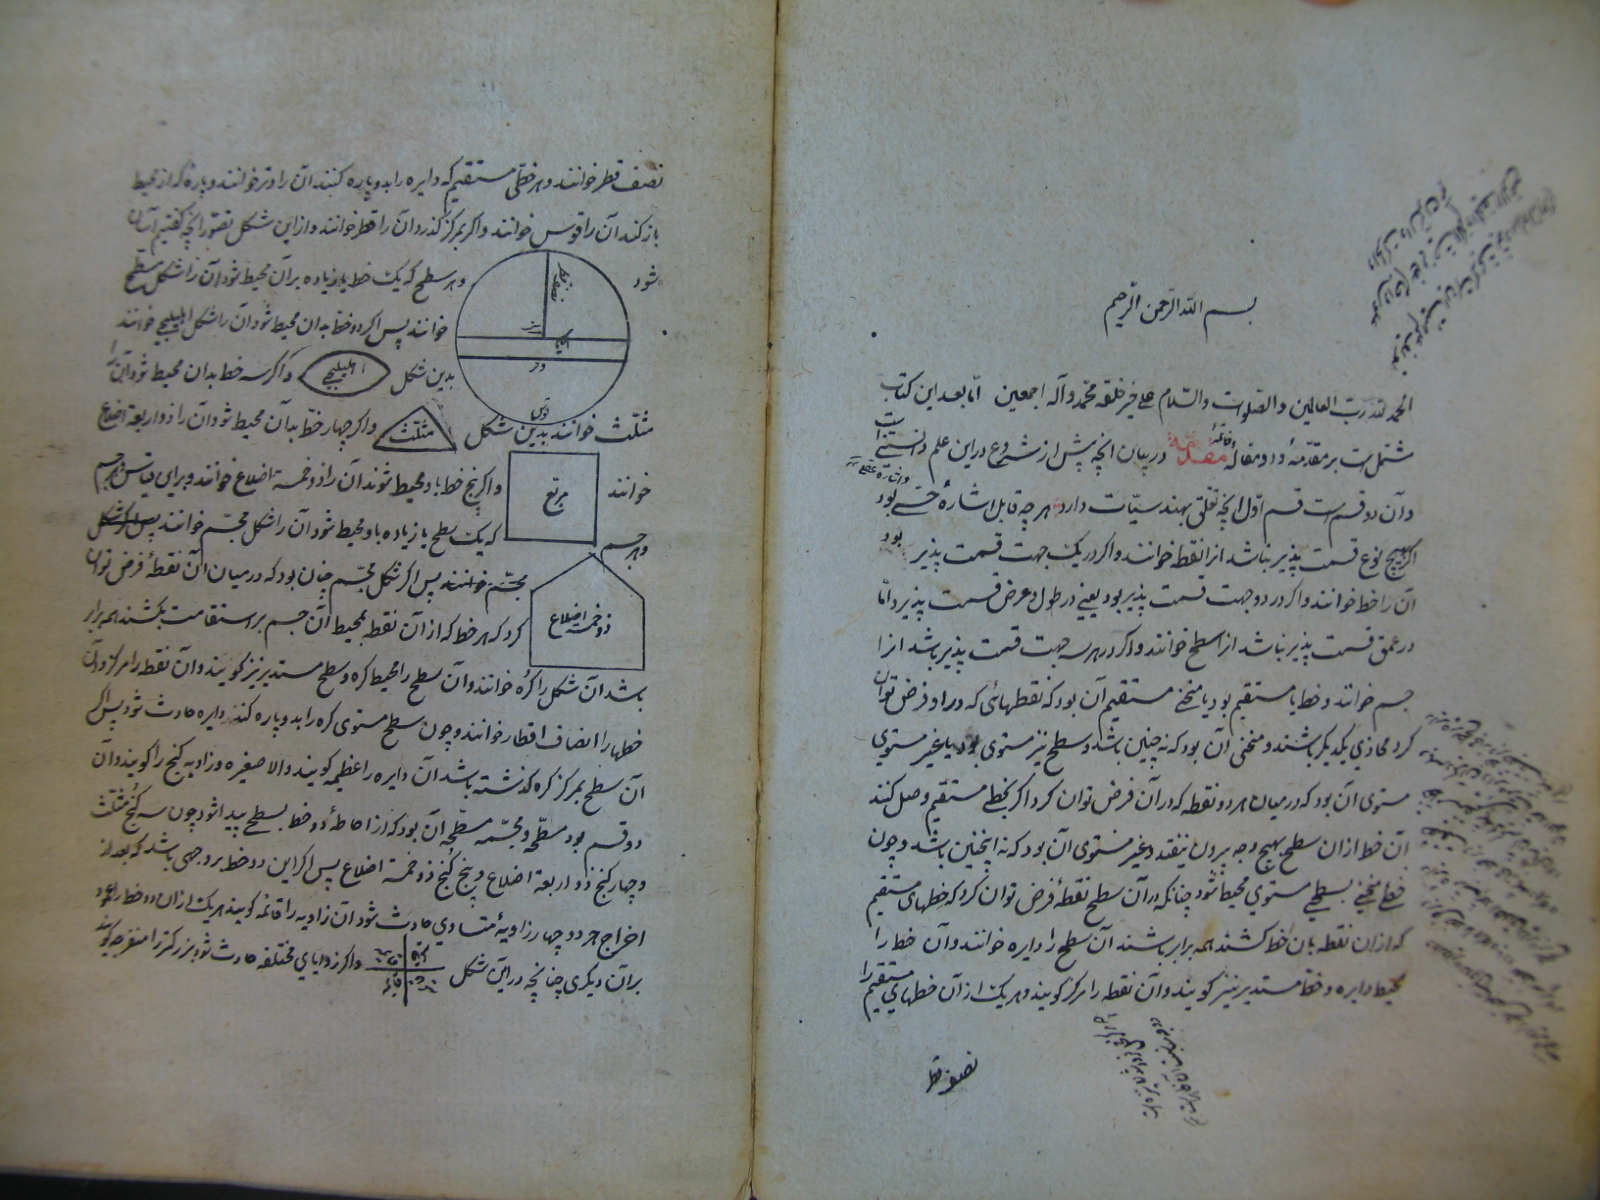 بسم الله الرحمن الرحیم
الحمد لله رب العالمین والصلوات والسلام علی خیر خلقه محمد وآله اجمعین امّا بعد این کتاب
مشتمل است بر مقدّمهٔ و دو مقاله و خاتمهٔ مقدمه در بیان انچه پیش از شروع در این علم دانستنی است
و آن دو قسم است قسم اوّل انچه تعلّق بهندسیّات دارد هر چه قابل اشارهٔ حسّی بود
اگر بهیچ نوع قسمت پذیر نباشد انرا نقطه خوانند و اگر در یک جهت قسمت پذیر بود
آن را خط خوانند و اگر در دو جهت قسمت پذیر بود یعنی در طول و عرض قسمت پذیرد و امّا
در عمق قسمت پذیر نباشد انرا سطح خوانند و اگر در هر سه جهت قسمت پذیر باشد انرا
جسم خوانند و خط یا مستقیم بود یا منحنی مستقیم آن بود که نقطهائی که درو فرض توان
کرد محاذی یکدیگر باشند و منحنی آن بود که نه چنین باشد و سطح نیز مستوی بود یا غیر مستوی
مستوی آن بود که در میان هر دو نقطه که در آن فرض توان کرد اگر بخطی مستقیم وصل کنند
آن خط ازان سطح بهیچ وجه بیرون نیفتد و غیر مستوی آن بود که نه اینچنین باشد و چون
خطی منحنی بسطحی مستوی محیط شود چنانکه در آن سطح نقطهٔ فرض توان کرد که خطهای مستقیم
که ازان نقطه بان خط کشند همه برابر باشند آن سطح را دایره خوانند و آن خط را
محیط دایره و خط مستدیر نیز گویند و آن نقطه را مرکز گویند و هر یک از آن خطهای مستقیم را
نصف قطر
نصف قطر خوانند و هر خطی مستقیم که دایره را بدو پاره کنند آن را وتر خوانند و پاره که از محیط
باز کند آن را قوس خوانند و اگر بمرکز گذرد آن را قطر خوانند و از این شکل تصوّر انچه گفتیم آسان
شود
نصف قطر
مرکز
قطر
وتر
قوس
و هر سطح که یک خط یا زیاده بر آن محیط شود آن را شکل مسطح
خوانند پس اگر دو خط بدان محیط شود آن را شکل اهلیلجی خوانند
بدین شکل اهلیلجی و اگر سه خط بدان محیط شود آن را
مثلّث خوانند بدین شکل مثلّث و اگر چهار خط بدان محیط شود آن را ذو اربعة اضلاع
خوانند مربّع و اگر پنج خط باو محیط شوند آن را ذو خمسة اضلاع خوانند و برای قیاس و هر جسم
که یک سطح یا زیاده باو محیط شود آن را شکل مجسّم خوانند پس اگر شکل
مجسّم خوانند پس اگر شکل مجسّم چنان بود که در میان آن نقطهٔ فرض توان
ذو خمسة اضلاع
کرد که هر خط که از آن نقطه بمحیط آن جسم بر استقامت بکشند همه برابر
باشد آن شکل را کره خوانند و آن سطح را محیط کره و سطح مستدیر نیز گویند و آن نقطه را مرکز و آن
خطها را انصاف اقطار خوانند و چون سطح مستوی کره را بدو پاره کند دایره حادث شود پس اگر
آن سطح بمرکز کره گذشته باشد آن دایره را عظیمه گویند والا صغیره و زاویه کنج را گویند و آن
دو قسم بود مسطّحه و مجسّمه مسطّحه آن بود که از احاطهٔ دو خط بسطح پیدا شود چون سه کنج مثلّث
و چهار کنج ذو اربعة اضلاع و پنج کنج ذو خمسة اضلاع پس اگر این دو خط بر وجهی باشد که بعد از
اخراج هر دو چهار زاویهٔ متساوی حادث شود آن زاویه را قائمه گویند و هر یک ازان دو خط را عمود
بر آن دیگری چنانچه در این شکل قائمه و اگر زوایای مختلفه حادث شود بزرگتر را منفرجه گویند